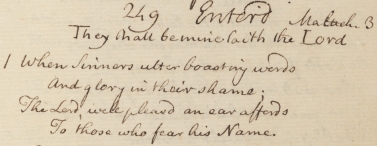 249 Enterd Malach. 3
They shall be mine saith the Lord
1 When Sinners utter boasting words
And glory in their shame;
The Lord, well pleasd an ear affords
To those who fear his Name.